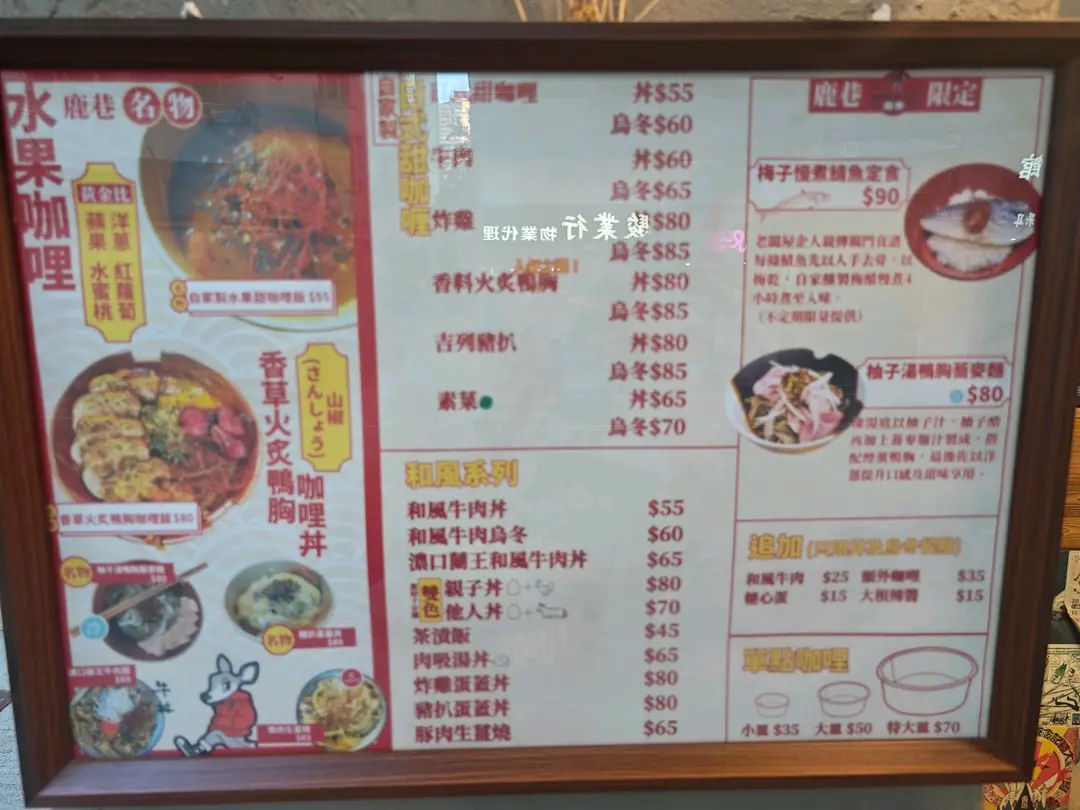 水果咖哩
鹿巷 名物
黃金比
洋蔥 紅蘿蔔
蘋果 水蜜桃
自家製水果甜咖哩飯 $55
山椒
(さんしょう)
香草火炙鴨胸
咖哩丼
香草火炙鴨胸咖哩飯 $80
名物
柚子湯鴨胸蕎麥麵
$80
名物
$80
牛丼
自家製
日式甜咖哩
甜咖哩 丼$55
烏冬$60
牛肉 丼$60
烏冬$65
炸雞 $80
烏冬$85
香料火炙鴨胸 丼$80
烏冬$85
吉列豬扒 丼$80
烏冬$85
素菜 丼$65
烏冬$70
駿業行物業代理
和風系列
和風牛肉丼 $55
和風牛肉烏冬 $60
濃口蘭王和風牛肉丼 $65
雙色
親子丼 $80
他人丼 $70
茶漬飯 $45
肉吸湯丼 $65
炸雞蛋蓋丼 $80
豬扒蛋蓋丼 $80
豚肉生薑燒 $65
鹿巷 限定
梅子慢煮鯖魚定食
$90
老闆屋企人親傳獨門食譜
每條鯖魚先以人手去骨，以
梅乾，自家釀製梅醋慢煮4
小時煮至入味。
(不定期限量提供)
柚子湯鴨胸蕎麥麵
$80
湯底以柚子汁，柚子醋
再加上蕎麥麵汁製成，搭
配煙燻鴨胸，最後佐以洋
蔥提升口感及甜味享用。
追加
和風牛肉 $25 額外咖哩 $35
糖心蛋 $15 大根辣醬 $15
單點咖哩
小皿 $35 大皿 $50 特大皿 $70